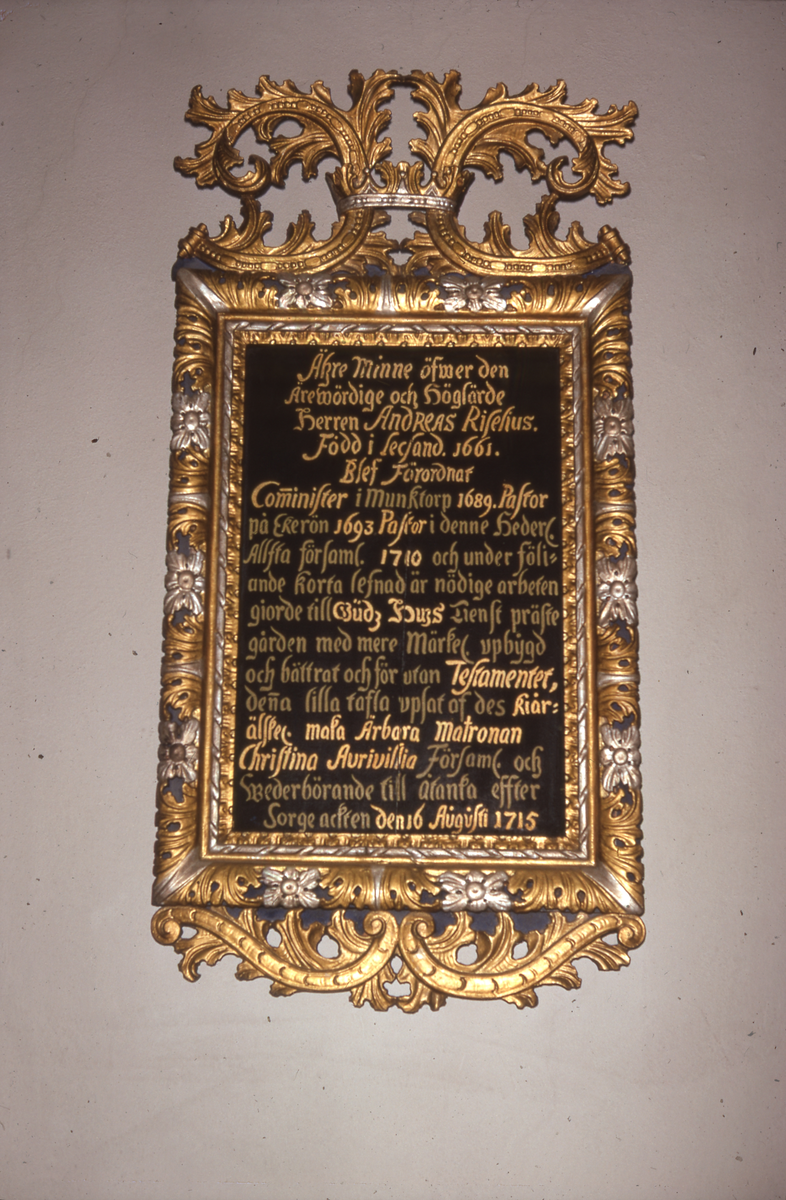 Ähre Minne öfwer den
Ärewördige och Höglärde
Herren Andreas Riselius.
Född i Lecsand. 1661.
Blef Förordnat
Com̄inister i Munktorp 1689. Pastor
på Ekerön 1693 Pastor i denne Heders
Allsta församl. 1710 och under följ=
ande korta lefnad är nödige arbeten
giorde till Gudz Huus Tienst präste
gården med mere Märkel upbygd
och bättrat och för utan Testamentet,
den̄a lilla tafla upsat af des kiär=
älskel maka Ärbara Matronan
Christina Aurivillia Församl och
Wederbörande till åtanka effter
Sorge ackten den 16 Augusti 1715